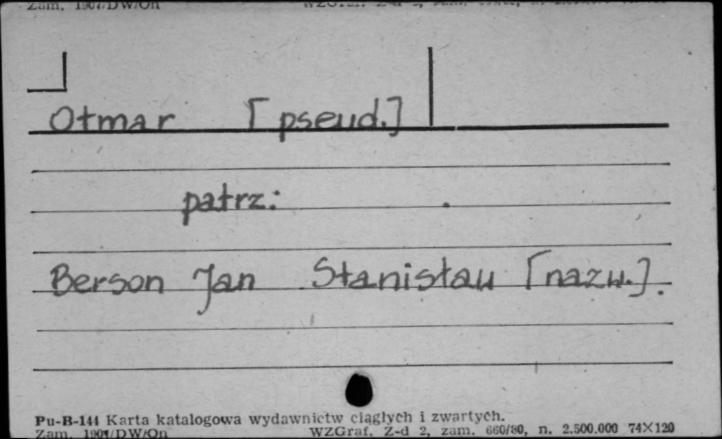 Otmar [pseud.]
patrz:
Berson Jan Stanisław [nazw.].
Pu-B-144 Karta katalogowa wydawnictw ciągłych i zwartych.
WZGraf. Z-d 2, zam. 660/80, n. 2.500.000 74X120